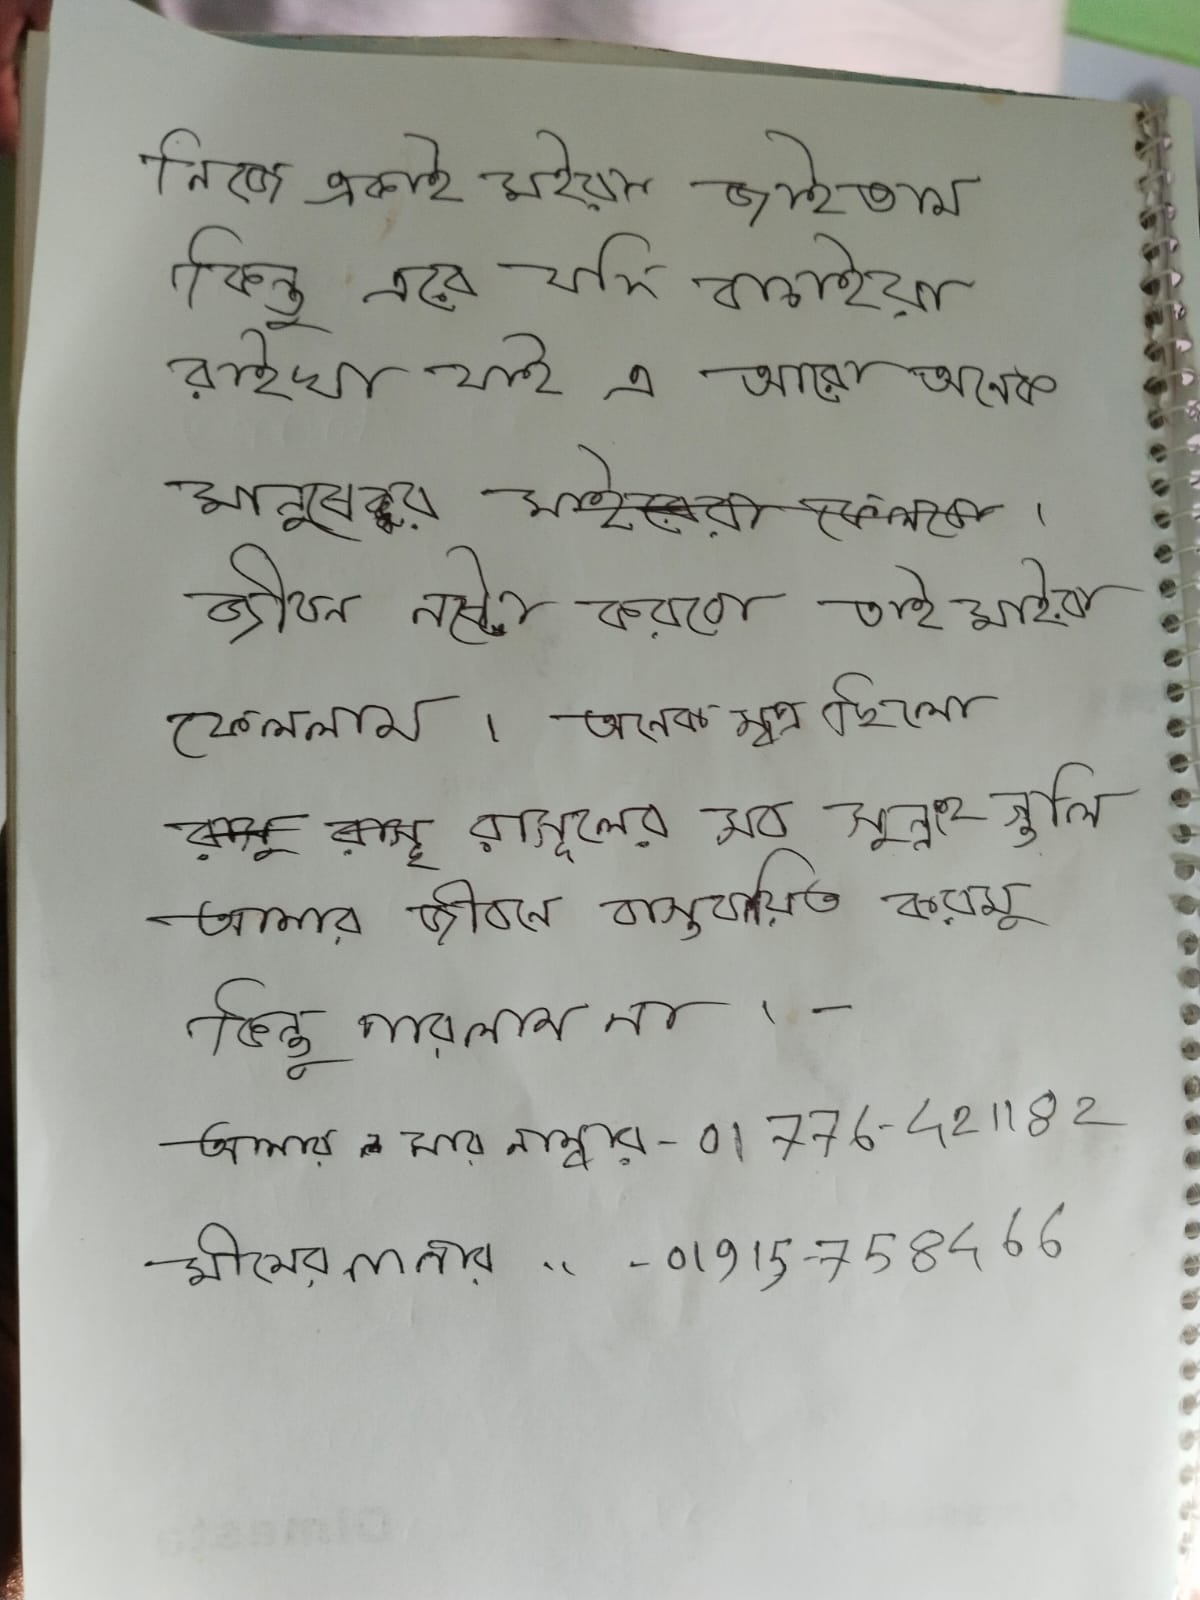 নিজে একাই মইরা জাইতাম
কিন্তু এরে যদি বাচাইয়া
রাইখা যাই এ আরো অনেক
মানুষের মাইরা ফেলবো ।
জীবন নষ্টো করবো তাই মাইরা
ফেললাম । অনেক স্বপ্ন ছিলো
রাসু রাসূ রাসূলের সব সুন্নাহ গুলি
আমার জীবনে বাস্তবায়িত করমু
কিন্তু পারলাম না । -
আমার মার নাম্বার - 01776-421182
মীমের নানীর .. - 01915-758466